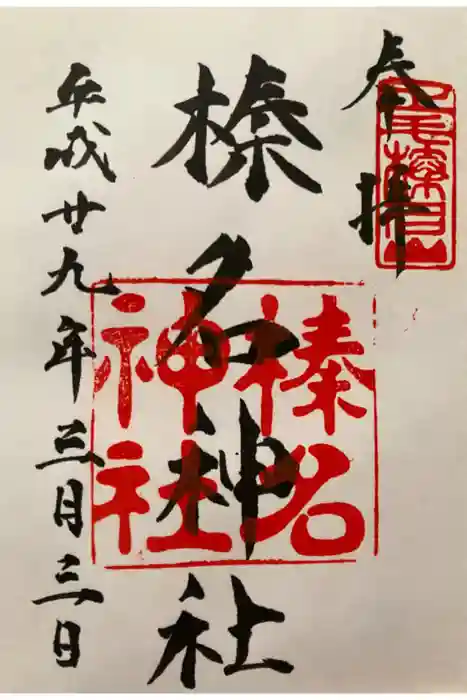 奉拝
榛名神社
平成廿九年三月三日
榛名
神社